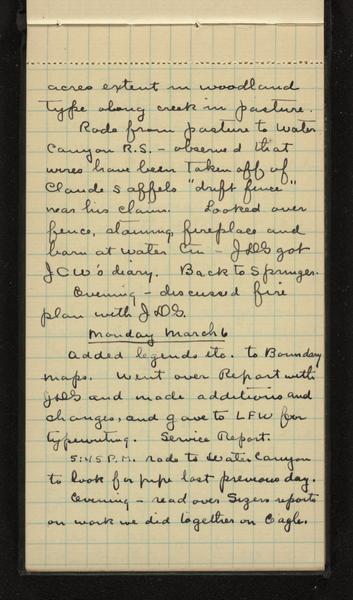 acres extent in woodland
type along creek in pasture.
Rode from pasture to Water
Canyon R.S. - observed that
wires have been taken off of
Claude Saffels "drift fence"
near his claim. Looked over
fence, fireplace and
barn at Water Cn - JDG got
JCW's diary. Back to Springer.
Evening - discussed fire
plan with JDG.
Monday March 6
Added legends etc. to Boundary
maps. Went over Report with
JDG and made additions and
changes, and gave to LFW for
typewriting. Service Report.
5:45 P.M. rode to Water Canyon
to look for pipe lost previous day.
Evening - read over Sizers reports
on work we did together on Eagle.